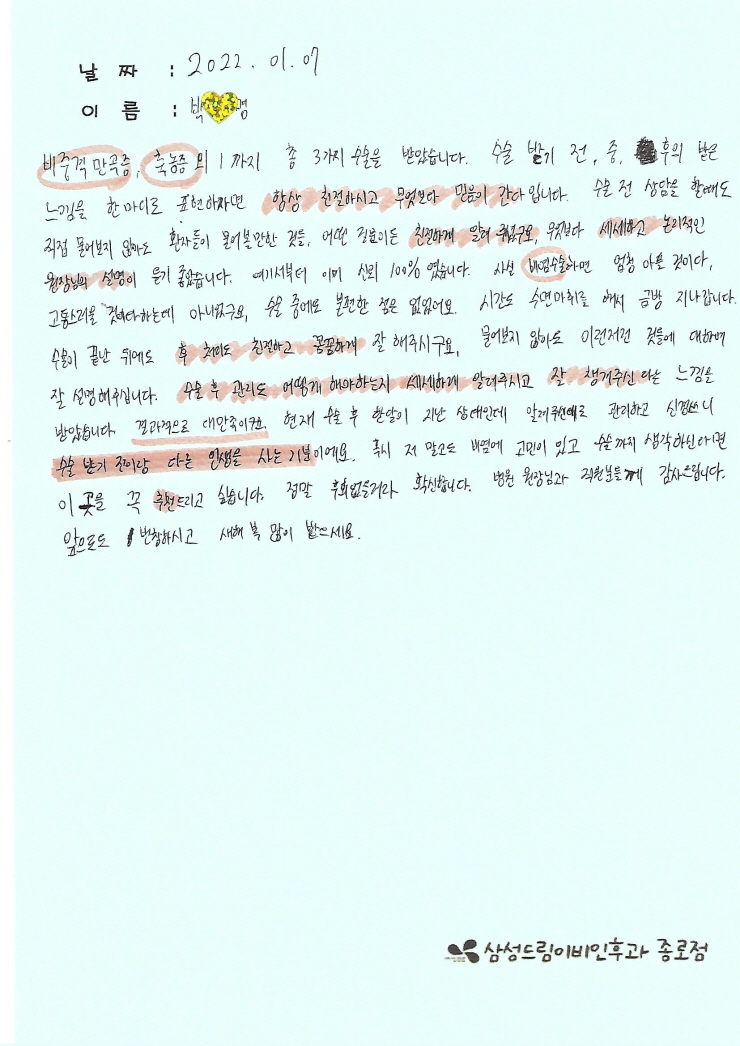 날 짜 : 2022. 01. 07
이 름 : 박 경
비중격 만곡증, 축농증 외 1 까지 총 3가지 수술을 받았습니다. 수술 받기 전, 중, 후의 받은
느낌을 한마디로 표현하자면 항상 친절하시고 무엇보다 믿음이 간다 입니다. 수술 전 상담을 할때도
직접 물어보지 않아도 환자들이 물어볼만한 것들, 어떤 질문이든 친절하게 알려 주셨구요, 무엇보다 세세하고 논리적인
원장님의 설명이 듣기 좋았습니다. 여기서부터 이미 신뢰 100% 였습니다. 사실 비염수술하면 엄청 아플 것이다,
고통스러울 것이다하는데 아니었구요, 수술 중에도 불편한 점은 없었어요. 시간도 수면마취를 해서 금방 지나갑니다.
수술이 끝난 뒤에도 후 처치도 친절하고 꼼꼼하게 잘 해주시구요, 물어보지 않아도 이런저런 것들에 대하여
잘 설명해주십니다. 수술 후 관리도 어떻게 해야하는지 세세하게 알려주시고 잘 챙겨주신다는 느낌을
받았습니다. 결과적으로 대만족이구요. 현재 수술 후 한달이 지난 상태인데 알려주신대로 관리하고 신경쓰니
수술 받기 전이랑 다른 인생을 사는 기분이에요. 혹시 저 말고도 비염에 고민이 있고 수술까지 생각하신다면
이 곳을 꼭 추천드리고 싶습니다. 정말 후회없을거라 확신합니다. 병원 원장님과 직원분들께 감사드립니다.
앞으로도 번창하시고 새해 복 많이 받으세요.
삼성드림이비인후과 종로점